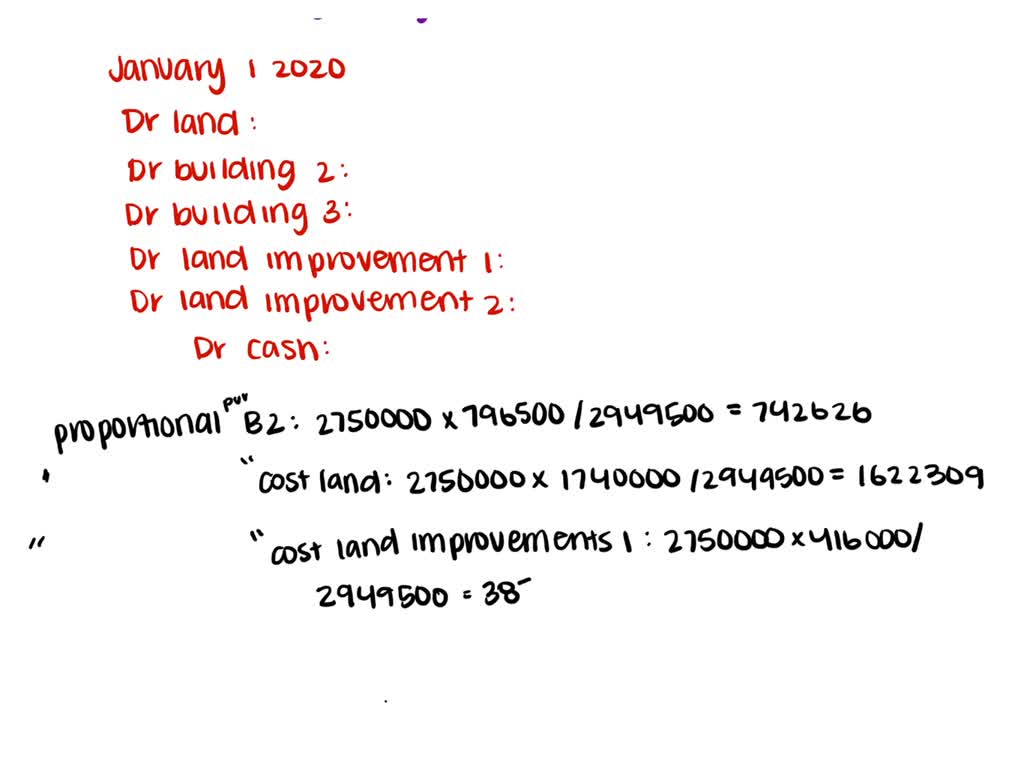 January 1 2020
Dr land:
Dr building 2:
Dr building 3:
Dr land improvement 1:
Dr land improvement 2:
Dr cash:
proportional pur B2: 2750000 x 796500 / 2949500 = 742626
" cost land: 2750000 x 1740000 / 2949500 = 1622309
" " cost land improvements 1: 2750000 x 416000/
2949500 = 38